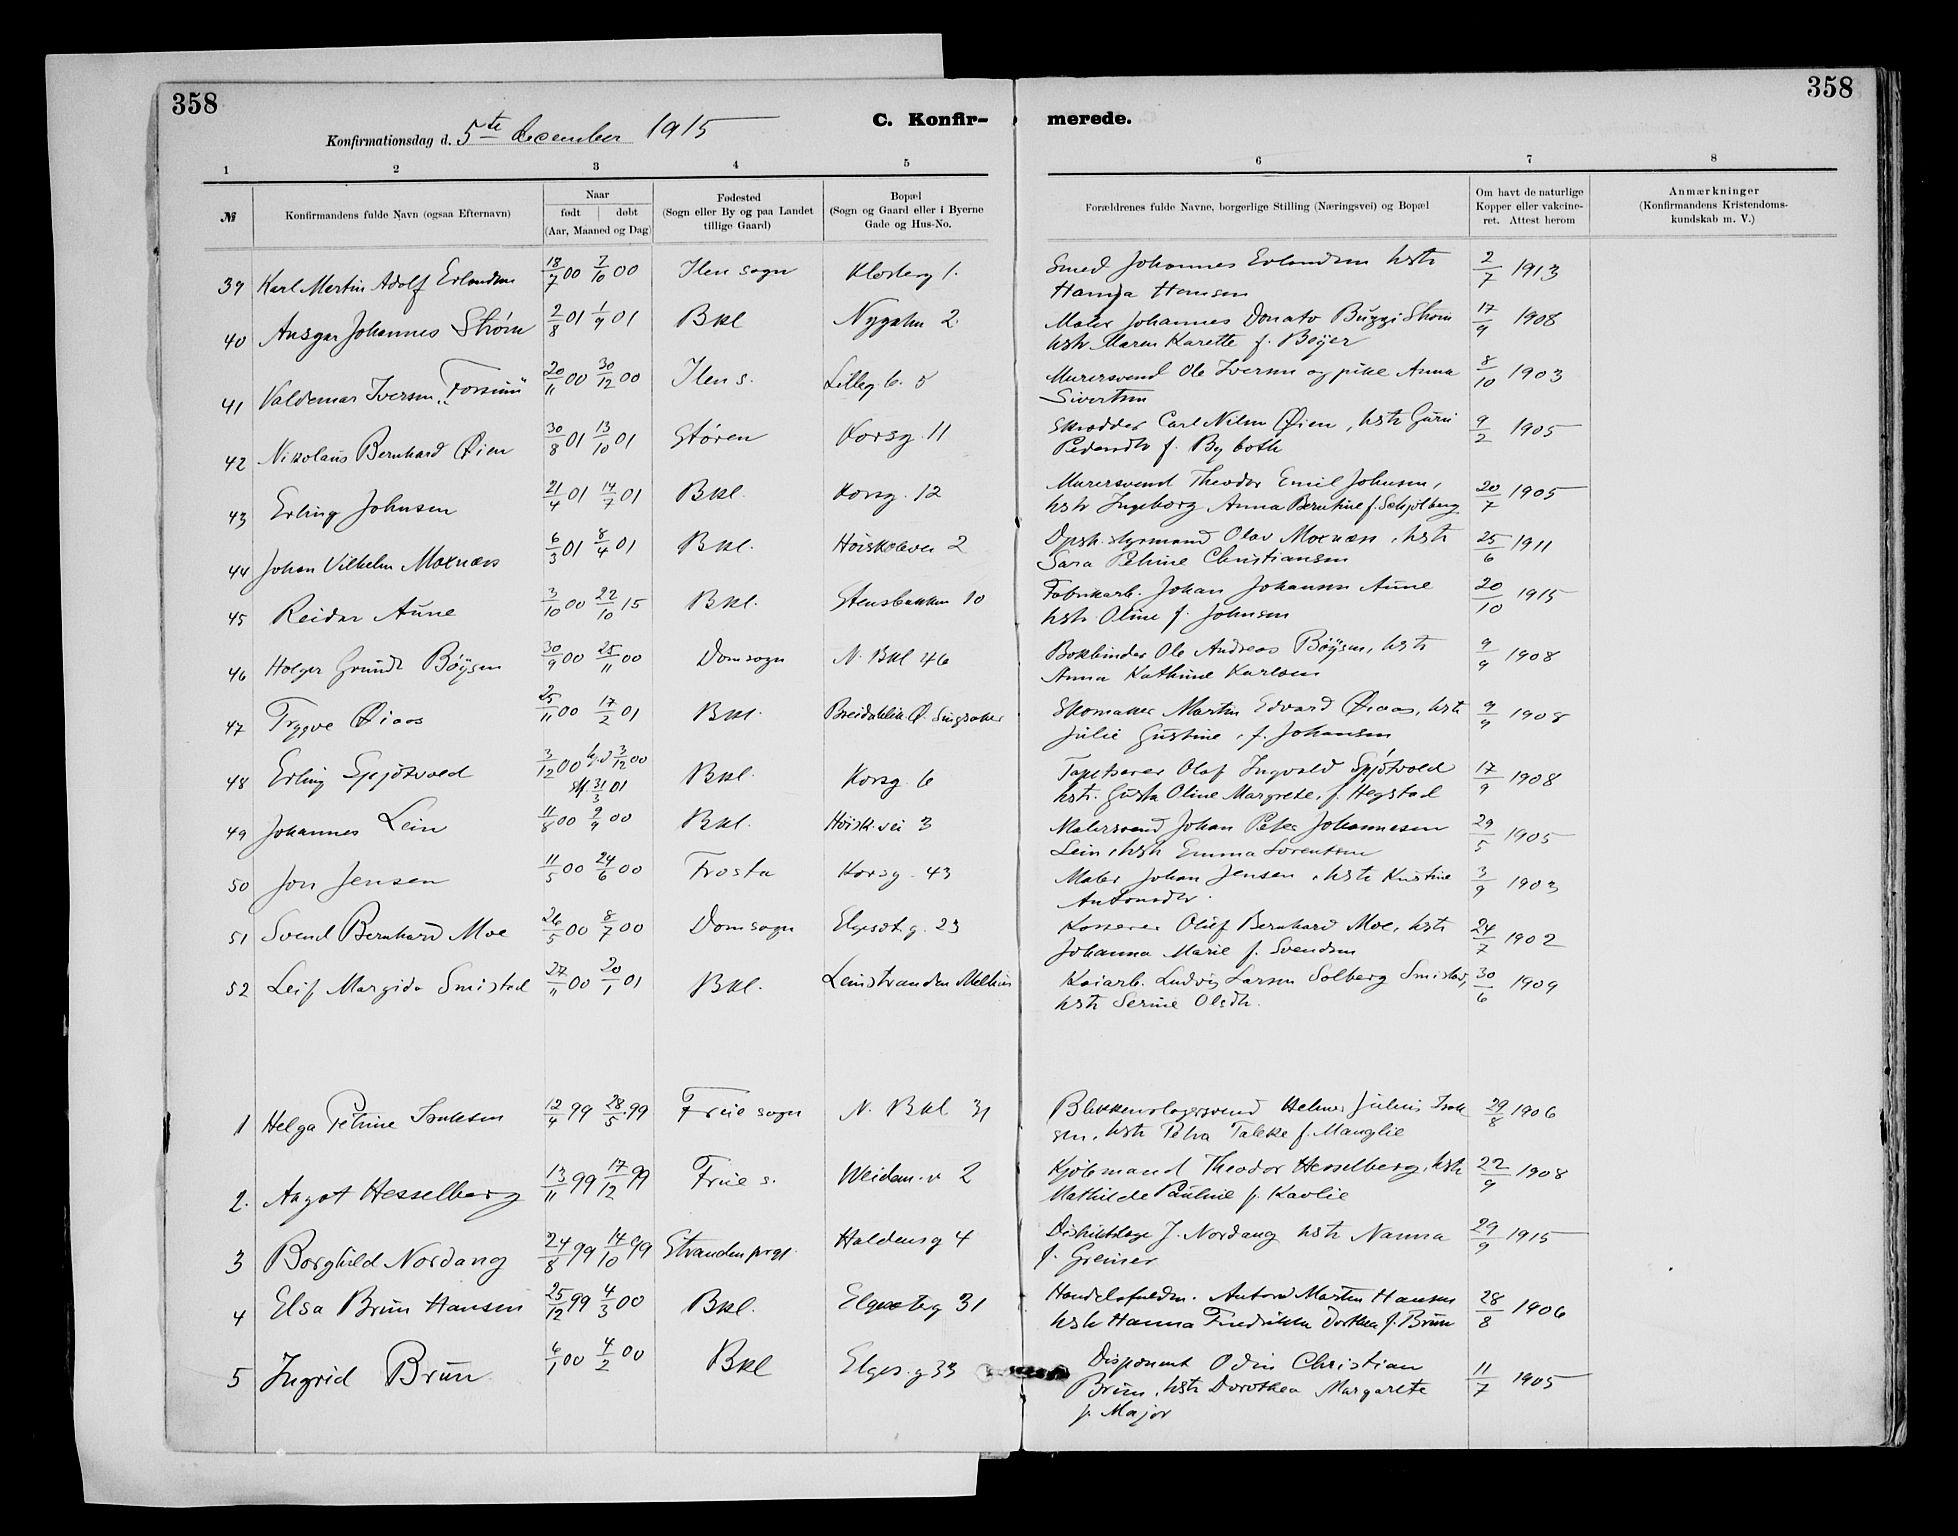 358
358
Konfirmationsdag d. 5te december 1915
C. Konfir- merede.
1 2 3 4 5 6 7 8
№ Konfirmandens fulde Navn (ogsaa Efternavn)
Naar
født døbt
(Aar, Maaned og Dag)
Fødested
(Sogn eller By og paa Landet
tillige Gaard)
Bopæl
(Sogn og Gaard eller i Byerne
Gade og Hus-No.
Forældrenes fulde Navne, borgerlige Stilling (Næringsvei) og Bopæl
Om havt de naturlige
Kopper eller vakcine-
ret. Attest herom
Anmærkninger
(Konfirmandens Kristendoms-
kundskab m. V.)
39 Karl Martin Adolf Erlandsen 18/7 00 7/10 00 Ilen sogn Klosterg 1. Smed Johannes Erlandsen hstr 2/7 1913
Hansen
40 Ansgar Johannes Strøm 2/8 01 1/9 01 Bkl Nygatn 2. Maler Johannes Donato Buggi Strøm 17/9 1908
hstr Maren Karette f. Beyer
41 Valdemar Iversen "Forsmü" 20/11 00 30/12 00 Ilen s. Lilleg b. 5 Murersvend Ole Iversen og pike Anna 8/10 1903
Sivertsen
42 Nikolaus Bernhard Øien 30/8 01 13/10 01 Støren Korsg. 11 Skrædder Carl Nilsen Øien, hstr Guri 9/2 1905
Pedersdtr f. By both
43 Erling Johnsen 21/4 01 14/7 01 Bkl. Korsg. 12 Murersvend Theodor Emil Johnsen, 20/7 1905
hstr Ingeborg Anna Berntine f. Schjølberg
44 Johan Vilhelm Moxnæss 6/3 01 8/4 01 Bkl. Høiskolevei 2 Dpsk. styrmand Olav Moxnæss, hstr 25/6 1911
Sara Petrine Christiansen
45 Reidar Aune 3/10 00 22/10 15 Bkl. Stensbakken 10 Fabrikarb. Johan Johansen Aune 20/10 1915
hstr Oline f. Johnsen
46 Holger Grundt Bøysen 30/9 00 25/11 00 Domsogn N. Bkl 46 Bokbinder Ole Andreas Bøysen, hstr 9/9 1908
Anna Kathrine Karlsen
47 Trygve Øiaas 25/11 00 17/2 01 Bkl. Breidablik Ø. Singsaker Skomaker Martin Edvard Øiaas, hstr 9/9 1908
Julie Gustine, f. Johansen
48 Erling Spjøtvold 3/12 00 hj.d 3/12 00 Bkl. Korsg. 6 Tapetserer Olaf Ingvald Spjøtvold 17/9 1908
st 31/3 01 hstr. Gusta Oline Margrete, f. Hegstad
49 Johannes Lein 11/8 00 9/9 00 Bkl. Høisk.vei 3 Malersvend Johan Peter Johannesen 29/5 1905
Lein, hstr Emma Lorentsen
50 Jon Jensen 11/5 00 24/6 00 Frosta Korsg. 43 Maler Johan Jensen, hstr Kristine 3/9 1903
Antonsdtr.
51 Svend Bernhard Moe 26/5 00 8/7 00 Domsogn Elgesetg. 23 Kasserer Oluf Bernhard Moe, hstr 24/7 1902
Johanna Marie f. Svendsen
52 Leif Margido Smistad 27/11 00 20/1 01 Bkl. Leinstranden Melhus Kaiarb. Ludvig Larsen Solberg Smistad, 30/6 1909
hstr Serine Olsdtr.
1 Helga Petrine Isaksen 12/4 99 28/5 99 Frue sogn N. Bkl 31 Blikkenslagersvend Helmer Julius Isak 29/8 1906
sen, hstr Petra Talette f. Manglie
2. Aagot Hesselberg 13/11 99 17/12 99 Frue s. Weidem. v 2 Kjøbmand Theodor Hesselberg, hstr 22/9 1908
Mathilde Pauline f. Kavlie
3 Borghild Nordang 24/8 99 14/10 99 Stranden prgj. Haldensg 4 Distriktslæge J. Nordang hstr Nanna 29/9 1915
f. Greiner
4 Elsa Brun Hansen 25/12 99 4/3 00 Bkl. Elgesetg 31 Handelsfuldm. Anton Martin Hansen 28/8 1906
hstr Hanna Fredrikke Dorthea f. Brun
5 Ingrid Brun 6/1 00 4/2 00 Bkl Elges. g 33 Disponent Odin Christian 11/7 1905
Brun, hstr Dorothea Margarete
f. Major